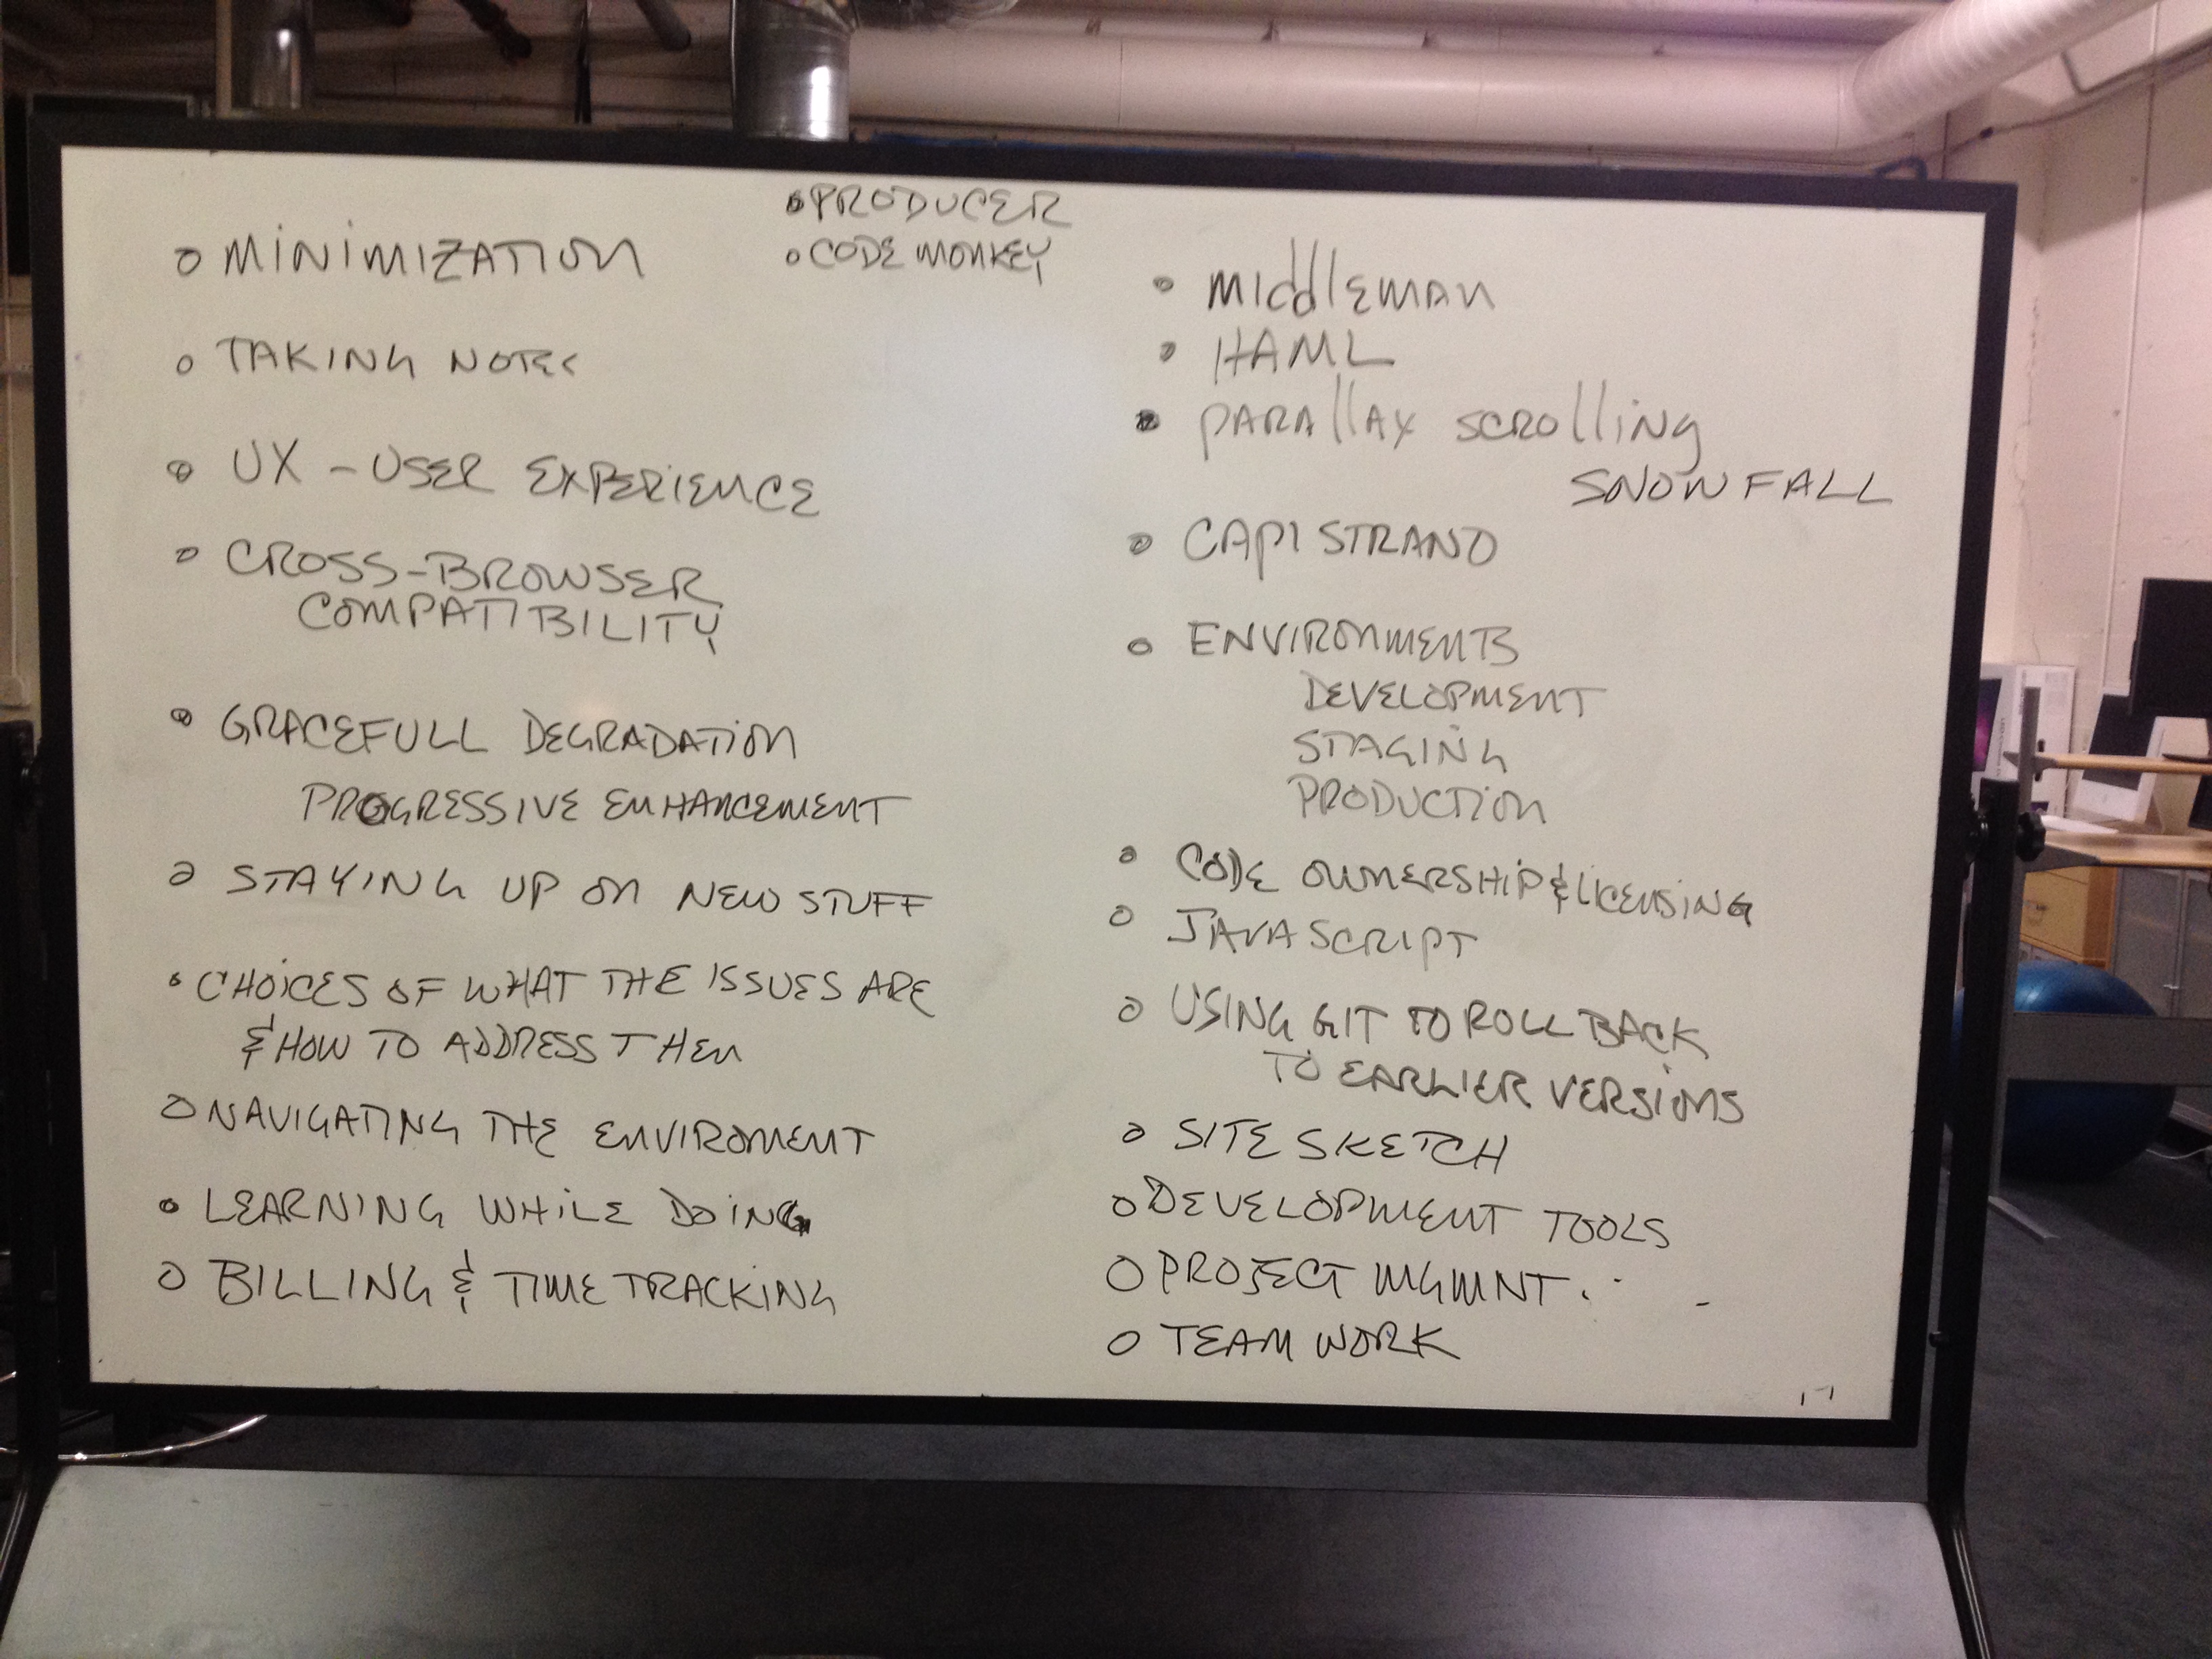 PRODUCER
CODE MONKEY
MINIMIZATION
TAKING NOTES
UX - USER EXPERIENCE
CROSS-BROWSER
COMPATIBILITY
GRACEFULL DEGRADATION
PROGRESSIVE ENHANCEMENT
STAYING UP ON NEW STUFF
CHOICES OF WHAT THE ISSUES ARE
& HOW TO ADDRESS THEM
NAVIGATING THE ENVIROMENT
LEARNING WHILE DOING
BILLING & TIME TRACKING
MIDDLEMAN
HAML
PARALLAX SCROLLING
SNOW FALL
CAPISTRANO
ENVIRONMENTS
DEVELOPMENT
STAGING
PRODUCTION
CODE OWNERSHIP & LICENSING
JAVASCRIPT
USING GIT TO ROLL BACK
TO EARLIER VERSIONS
SITE SKETCH
DEVELOPMENT TOOLS
PROJECT MGMNT.
TEAM WORK